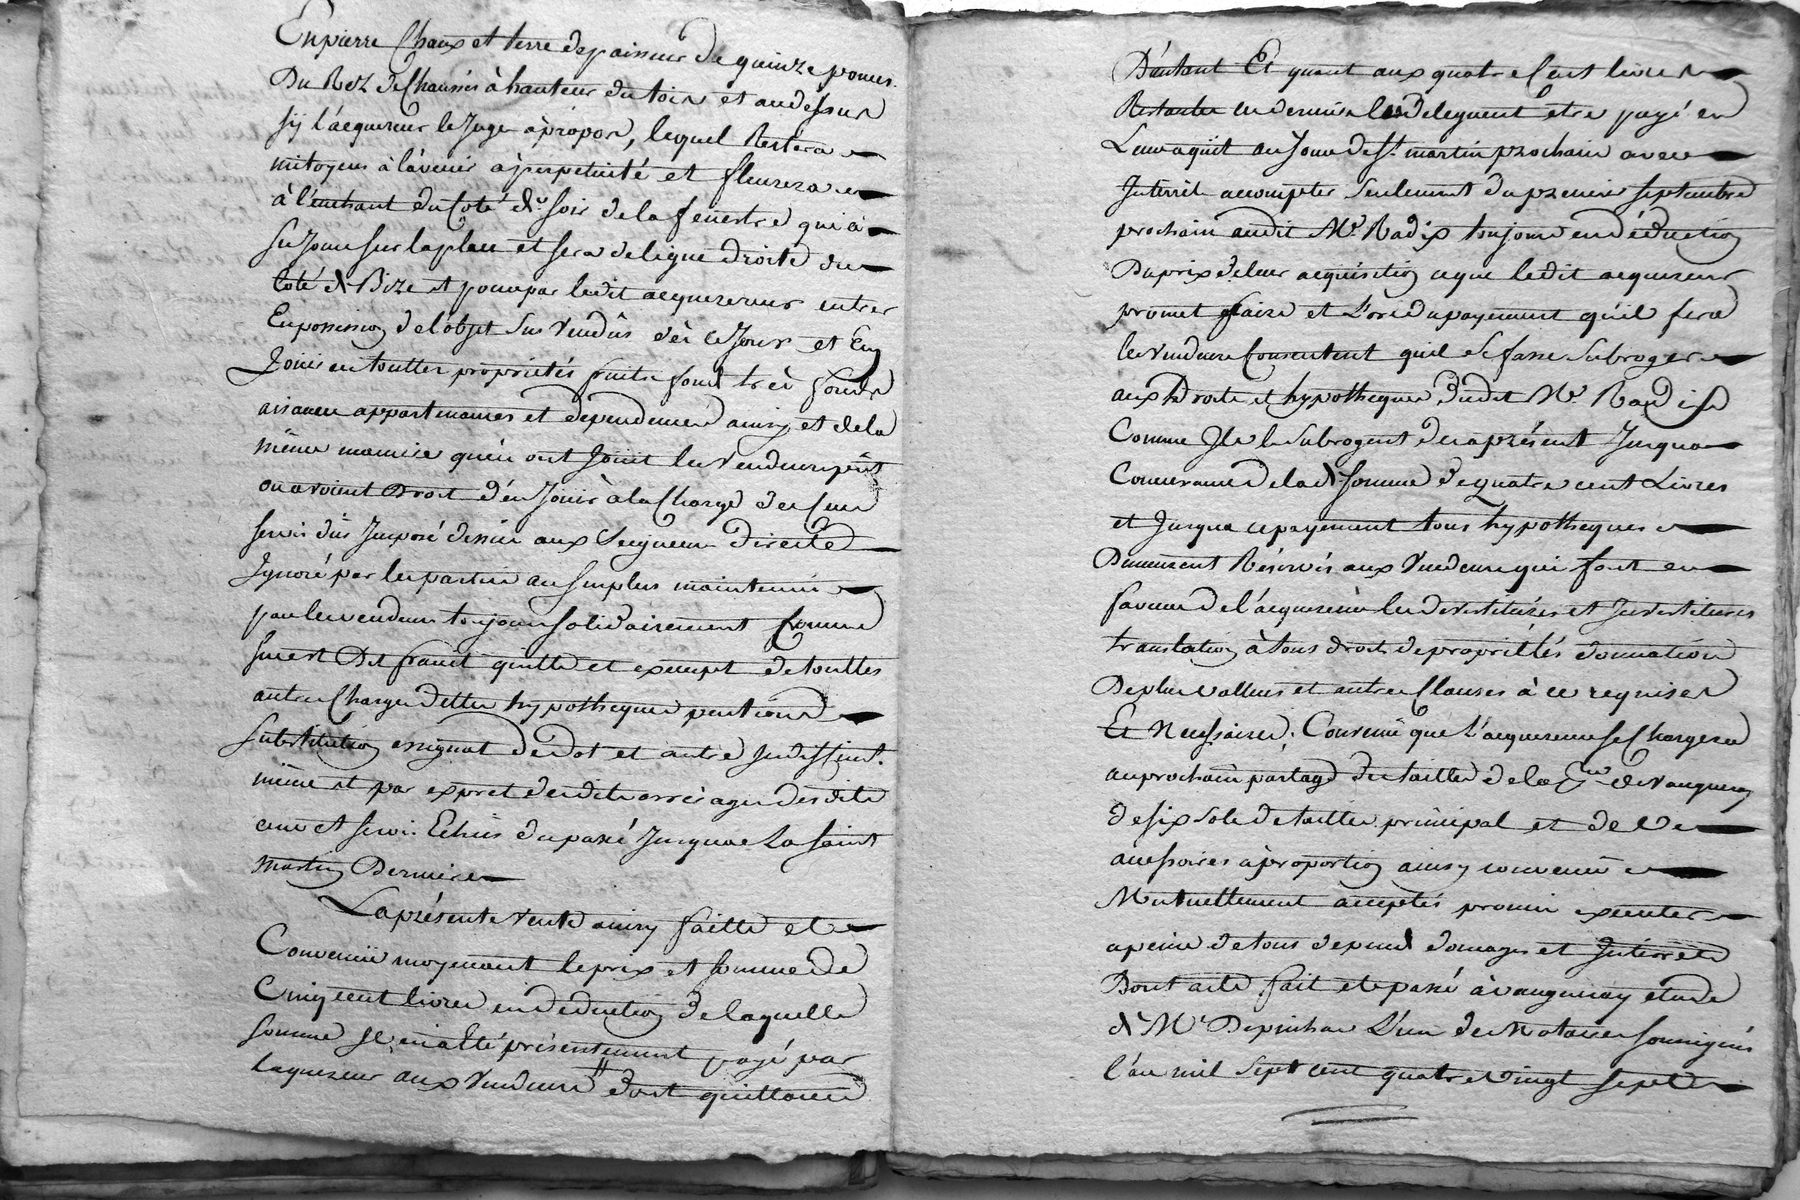 En pierre Chaux et terre depaisseur de quinze pouces
Du Rez de Chaussés à hauteur du toix et au dessus
sy l'acquereur le Juge àpropos, lequel Restera
mitoyens à l'avenir àperpetuité et
à l'entrant du Coté du soir de la fenestre qui à
su Jour sur la place et sera de ligne droite du
Coté de Bize et pourra par ledit acquereur entrer
En possession de l'objet sus vendûs dès ce Jour et En
Jouir en touttes proprietés fruits fond très fonds
aisances appartenances et dependences ainsy et de la
même maniere qu'en ont Joüit les vendeurs
ou avoient Droit d'en Joüir à la Charge des Cens
servis dûs Imposé dessus aux Seigneurs directe
Ignoré par les parties au surplus maintenu
par les vendeurs toujours solidairement Comme
susest Dit franct quitte et exempt de touttes
autres Charges dettes hypotheques pentions
substitution assignat de dot et autre Indistinct.
même et par expret desdits arrérages desdits
cens et servis Echus du passé Jusqua La saint
Martin Derniere
La présente vente ainsy faitte et
Convenüe moyenant le prix et somme de
Cinq cent livres en deduction de laquelle
somme Il en a été présentement payé par
Laquereur aux Vendeurs dont quittance
D'autant Et quant aux quatre Cent livres
Restantes ces derniers les deleguent etre payé en
Leur aquit au Jour de St. martin prochain avec
Interrit accompter seulement du premier septembre
prochain audit Mr. Radix toujours en déduction
Du prix de leur acquisition ce que ledit acquereur
promet faire et Lors du payement qu'il fera
les vendeurs Consentent quil se fasse subroger
aux Droits et hypotheques dudit Mr. Radix
Comme Ils le subrogent des aprésent Jusqua
Concurance de lad. somme de quatre cent Livres
et Jusqua ce payement tous hypotheques
Demeurent Réservés aux Vendeurs qui font en
faveur de l'acquereur les devestitures et Investitures
translation à tous droit de proprietés donnation
De plus vallues et autres Clauses à ce requises
Et Necessaires. Convenû que l'acquereur se Chargera
au prochain partage des tailles de la de Vaugneray
de six sols de taille principal et de
accessoires àproportion ainsy convenû
Mutuellement acceptés promis executer
apeine de tous depend domages et Intérets
Dont acte fait et passé à vaugneray etude
de Me Depinhac L'un des Notaires soussignés
l'an mil sept cent quatre vingt sept